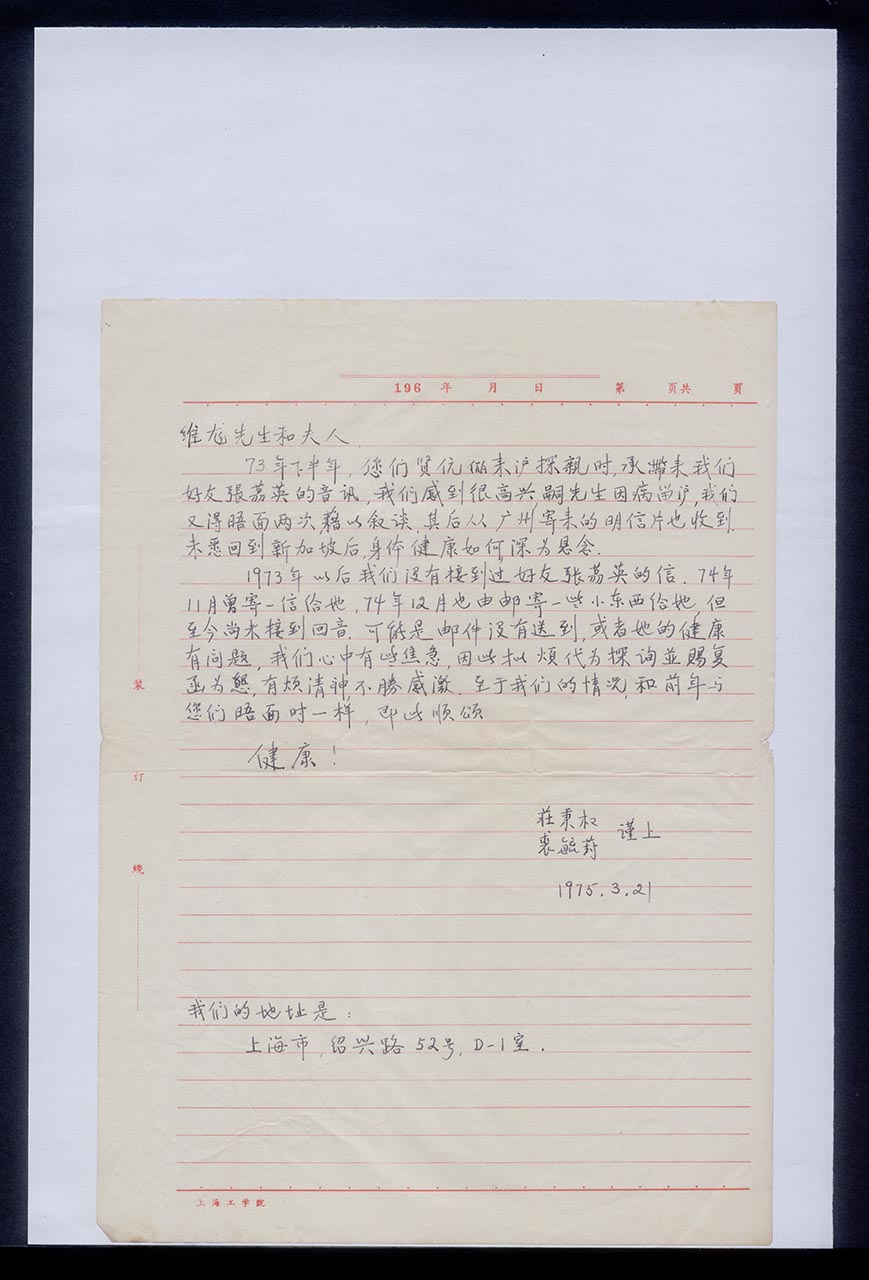 196 年 月 日 第 页共 页
维龙先生和夫人
73年下半年,您们贤伉俪来沪探亲时,承滞来我们
好友張荔英的音讯,我们感到很高兴,嗣先生因病留沪,我们
又得晤面两次,藉以叙谈,其后从广州寄来的明信片也收到.
未悉回到新加坡后,身体健康如何,深为悬念.
1973年以后我们没有接到过好友張荔英的信.74年
11月曾寄一信给她,74年12月也由邮寄一些小东西给她,但
至今尚未接到回音.可能是邮件没有送到,或者她的健康
有问题,我们心中有些焦急,因此拟烦代为探询並赐复
函为懇,有烦清神,不勝感激.至于我们的情况,和前年与
您们晤面时一样,即此顺颂
健康!
莊秉权
裘毓 谨上
1975.3.21
我们的地址是:
上海市,绍兴路52号,D-1室.
装
订
线
上海工学院